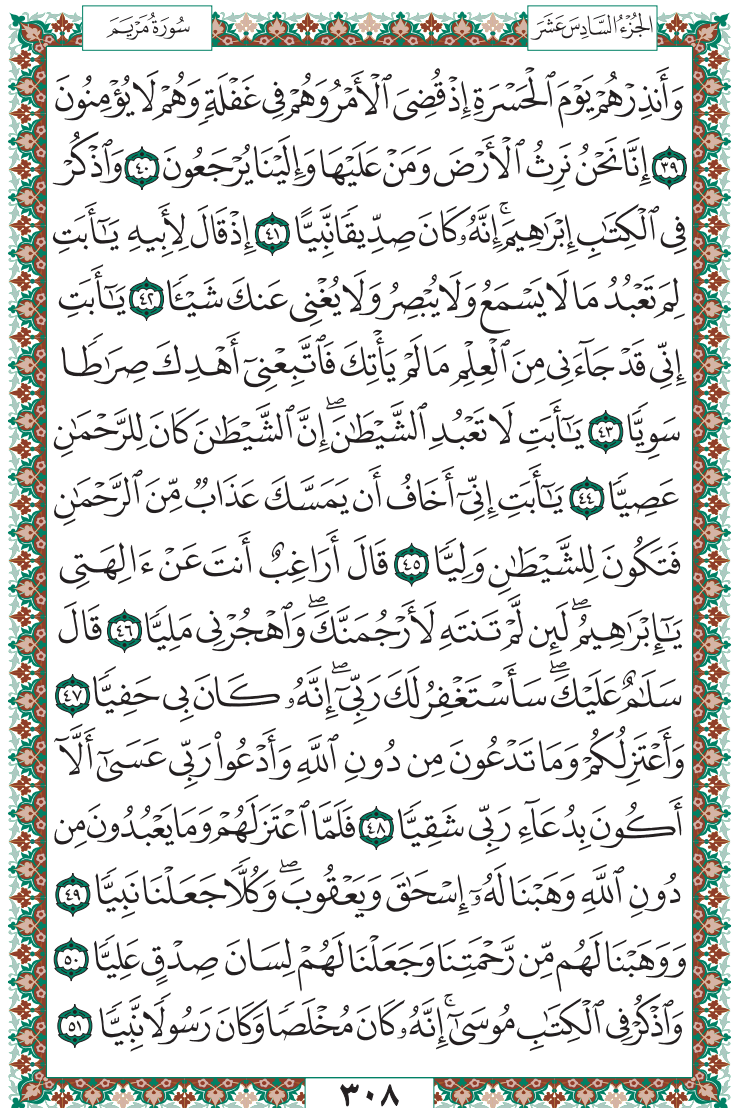 الجُزْءُ السَّادِسَ عَشَرَ
سُورَةُ مَرْيَمَ
وَأَنذِرْهُمْ يَوْمَ ٱلْحَسْرَةِ إِذْ قُضِىَ ٱلْأَمْرُ وَهُمْ فِى غَفْلَةٍ وَهُمْ لَا يُؤْمِنُونَ
٣٩ إِنَّا نَحْنُ نَرِثُ ٱلْأَرْضَ وَمَنْ عَلَيْهَا وَإِلَيْنَا يُرْجَعُونَ ٤٠ وَٱذْكُرْ
فِى ٱلْكِتَـٰبِ إِبْرَٰهِيمَ ۚ إِنَّهُۥ كَانَ صِدِّيقًا نَّبِيًّا ٤١ إِذْ قَالَ لِأَبِيهِ يَـٰٓأَبَتِ
لِمَ تَعْبُدُ مَا لَا يَسْمَعُ وَلَا يُبْصِرُ وَلَا يُغْنِى عَنكَ شَيْـًٔا ٤٢ يَـٰٓأَبَتِ
إِنِّى قَدْ جَآءَنِى مِنَ ٱلْعِلْمِ مَا لَمْ يَأْتِكَ فَٱتَّبِعْنِىٓ أَهْدِكَ صِرَٰطًا
سَوِيًّا ٤٣ يَـٰٓأَبَتِ لَا تَعْبُدِ ٱلشَّيْطَـٰنَ ۖ إِنَّ ٱلشَّيْطَـٰنَ كَانَ لِلرَّحْمَـٰنِ
عَصِيًّا ٤٤ يَـٰٓأَبَتِ إِنِّىٓ أَخَافُ أَن يَمَسَّكَ عَذَابٌ مِّنَ ٱلرَّحْمَـٰنِ
فَتَكُونَ لِلشَّيْطَـٰنِ وَلِيًّا ٤٥ قَالَ أَرَاغِبٌ أَنتَ عَنْ ءَالِهَتِى
يَـٰٓإِبْرَٰهِيمُ ۖ لَئِن لَّمْ تَنتَهِ لَأَرْجُمَنَّكَ ۖ وَٱهْجُرْنِى مَلِيًّا ٤٦ قَالَ
سَلَـٰمٌ عَلَيْكَ ۖ سَأَسْتَغْفِرُ لَكَ رَبِّىٓ ۖ إِنَّهُۥ كَانَ بِى حَفِيًّا ٤٧
وَأَعْتَزِلُكُمْ وَمَا تَدْعُونَ مِن دُونِ ٱللَّهِ وَأَدْعُوا۟ رَبِّى عَسَىٰٓ أَلَّآ
أَكُونَ بِدُعَآءِ رَبِّى شَقِيًّا ٤٨ فَلَمَّا ٱعْتَزَلَهُمْ وَمَا يَعْبُدُونَ مِن
دُونِ ٱللَّهِ وَهَبْنَا لَهُۥٓ إِسْحَـٰقَ وَيَعْقُوبَ ۖ وَكُلًّا جَعَلْنَا نَبِيًّا ٤٩
وَوَهَبْنَا لَهُم مِّن رَّحْمَتِنَا وَجَعَلْنَا لَهُمْ لِسَانَ صِدْقٍ عَلِيًّا ٥٠
وَٱذْكُرْ فِى ٱلْكِتَـٰبِ مُوسَىٰٓ ۚ إِنَّهُۥ كَانَ مُخْلَصًا وَكَانَ رَسُولًا نَّبِيًّا ٥١
٣٠٨